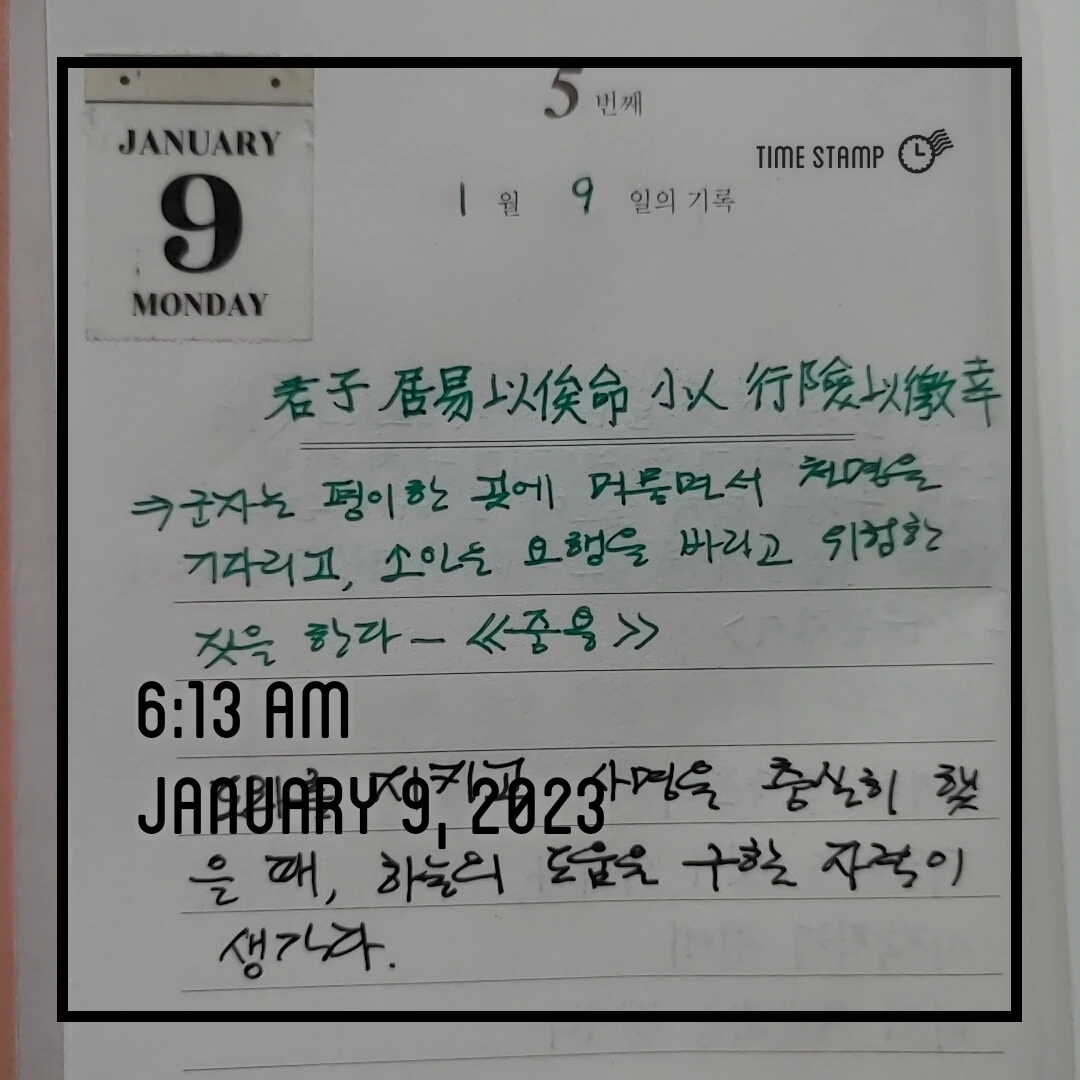 JANUARY
9
MONDAY
5 번째
TIME STAMP
1 월 9 일의 기록
君子居易以俟命 小人行險以徼幸
⇒군자는 평이한 곳에 머물면서 천명을
기다리고, 소인은 요행을 바라고 위험한
짓을 한다 - 《중용》
6:13 AM
지키고 사명을 충실히 했
JANUARY 9, 2023
을 때, 하늘의 도움을 구할 자격이
생긴다.